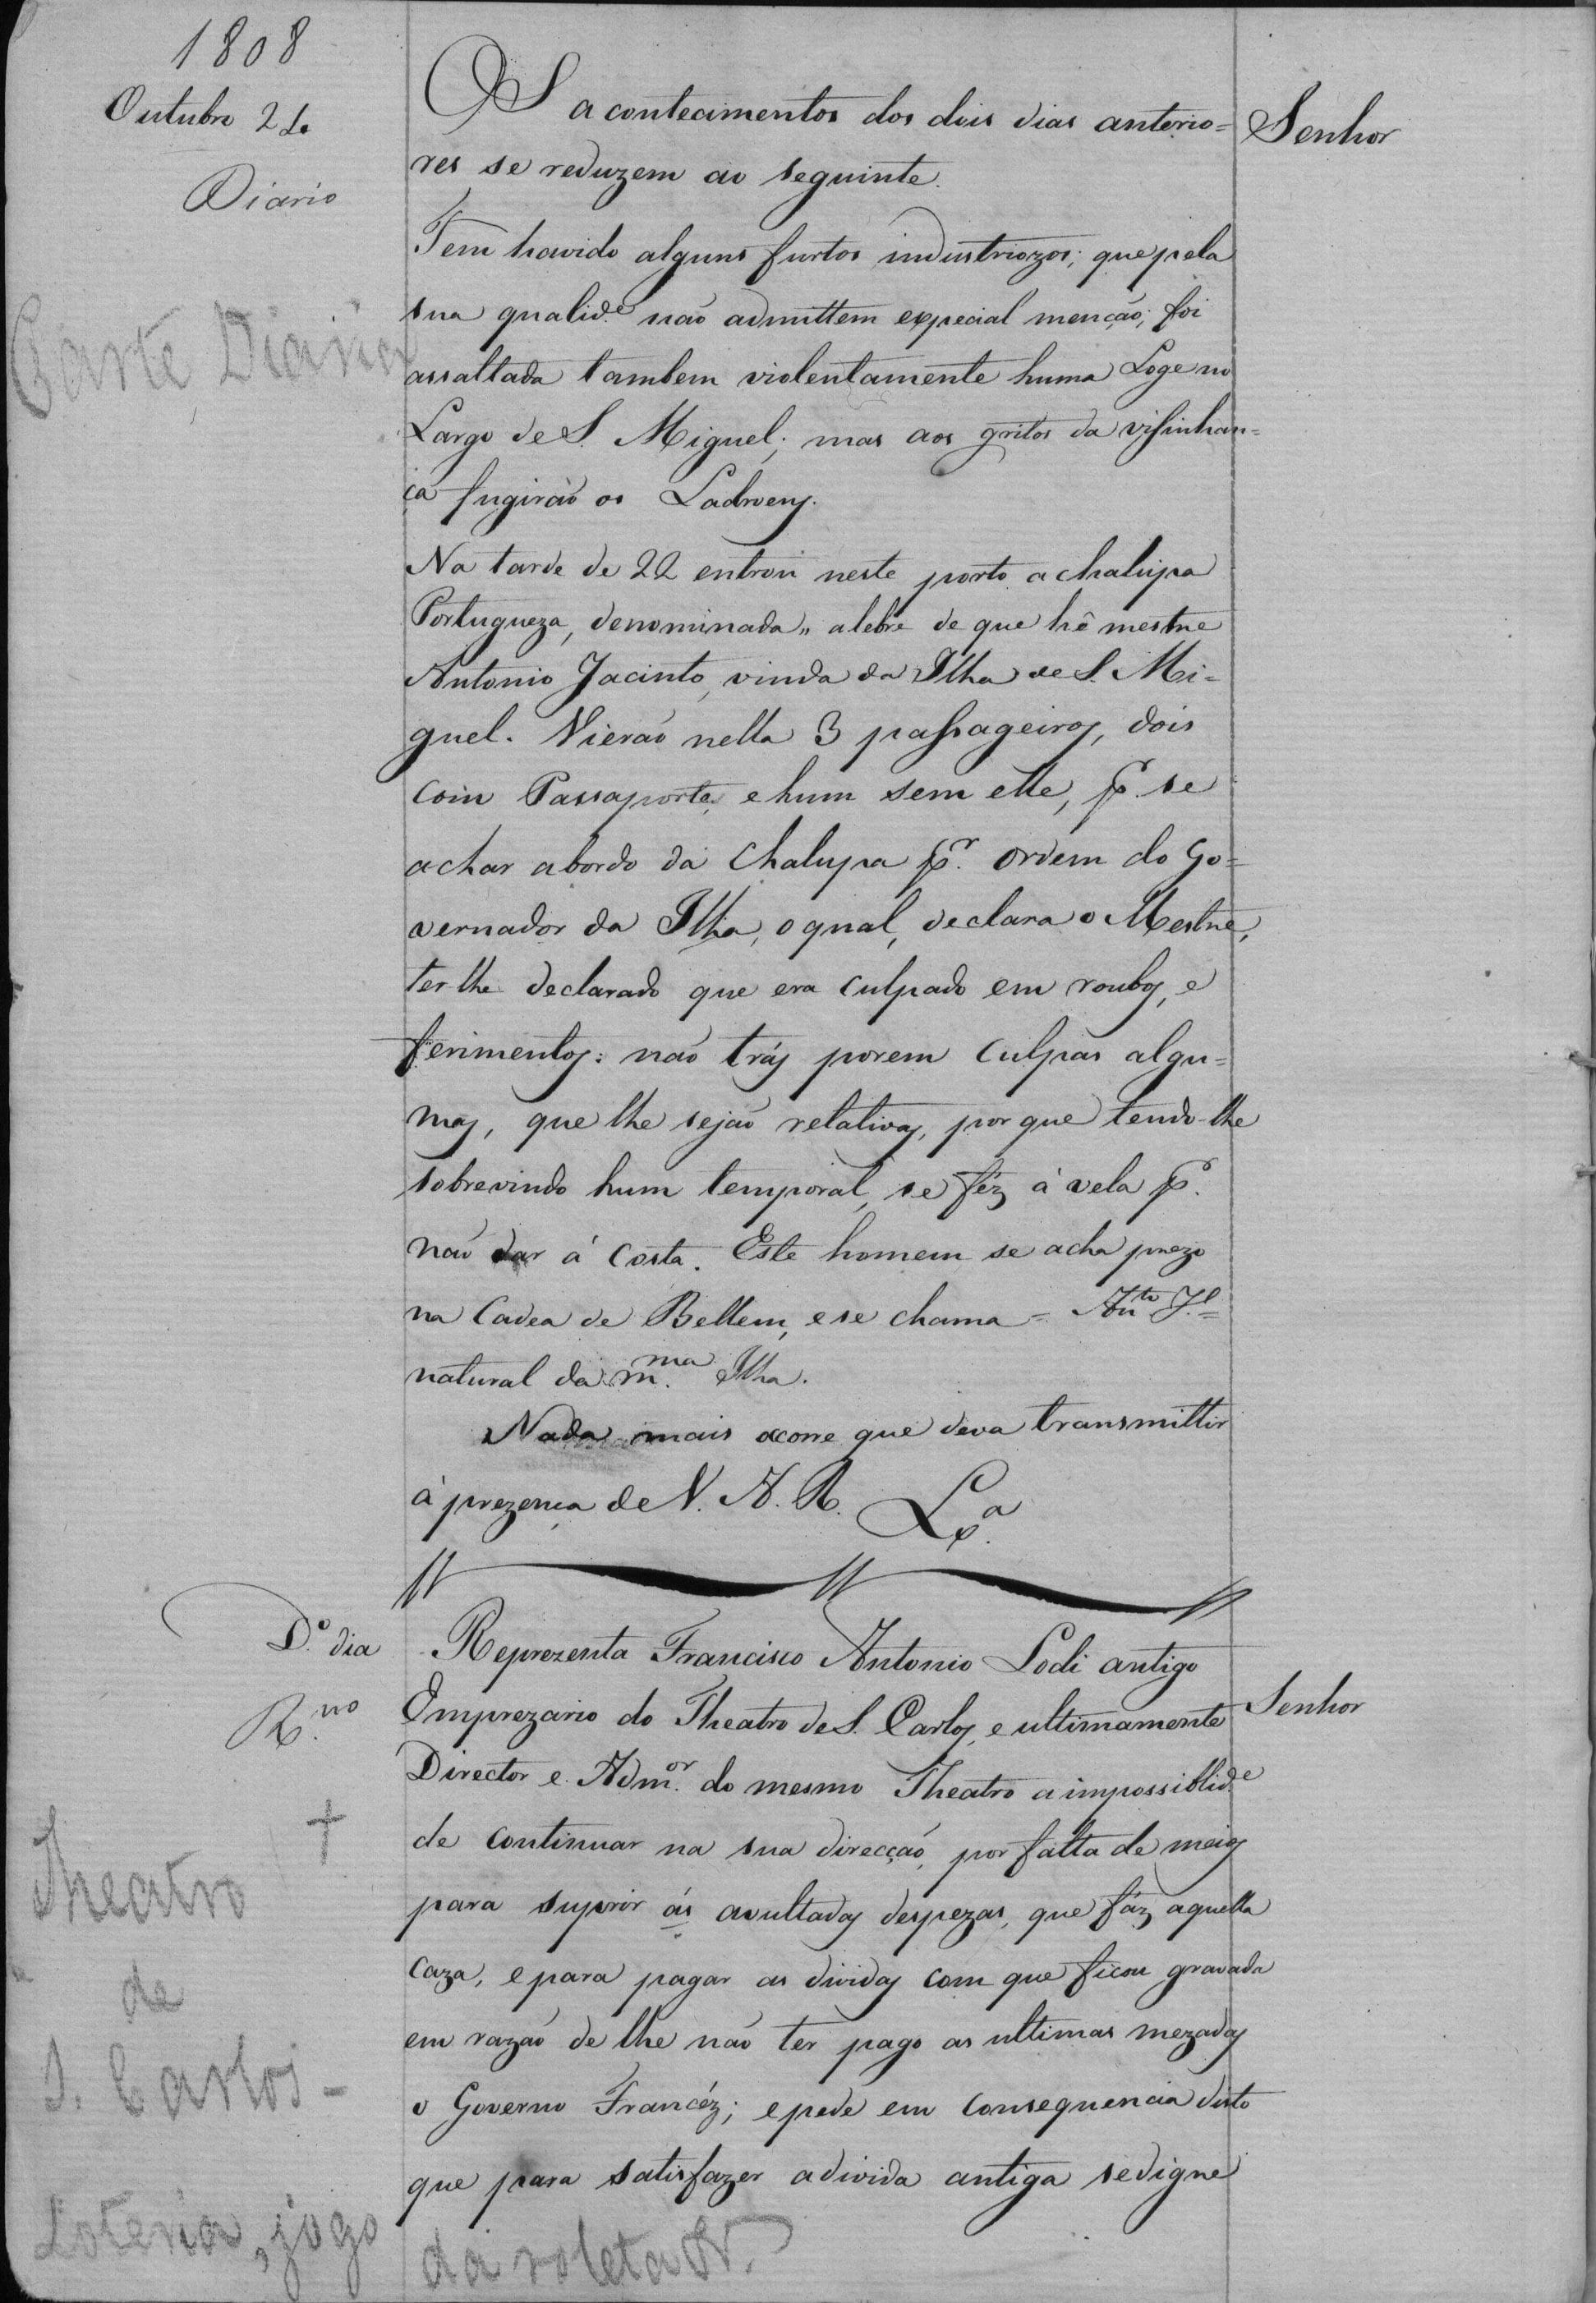 1808
Outubro 24
Diario
Parte Diaria
Senhor
OS acontecimentos dos dois dias anterio=
res se reduzem ao seguinte.
Tem havido alguns furtos industriozos; que pela
sua qualid.e não admittem especial menção; foi
assaltada tambem violentamente huma Loge no
Largo de S. Miguel; mas aos gritos da visinhan=
ça fugirão os Ladroens.
Na tarde de 22 entrou neste porto a chalupa
Portugueza, denominada „ alebre de que hê mestre
Antonio Jacinto, vinda da Ilha de S. Mi=
guel. Vierão nella 3 passageiros, dois
com Passaporte, e hum sem elle, p. se
achar abordo da Chalupa p.r ordem do Go=
vernador da Ilha, o qual, declara o Mestre,
ter lhe declarado que era culpado em roubos, e
ferimentos: não trás porem culpas algu=
mas, que lhe sejão relativas, por que tendo-lhe
sobrevindo hum temporal, se féz á vela p.
não dar á Costa. Este homem se acha prezo
na Cadea de Bellem, e se chama = Ant.to J.l =
natural da m.ma Ilha.
Nada mais ocorre que deva transmittir
á prezença de V. A. R. Lx.a
D.o dia
R.no
Senhor
Theatro †
de
S. Carlos -
Loteria, jogo da roleta N.
Reprezenta Francisco Antonio Lodi antigo
Emprezario do Theatro de S. Carlos, e ultimamente
Director e Adm.or do mesmo Theatro a impossiblid.e
de continuar na sua direcção, por falta de meios
para suprir ás avultadas despezas, que fáz aquella
Caza, e para pagar as dividas com que ficou gravada
em razão de lhe não ter pago as ultimas mezadas
o Governo Francéz; e pede em consequencia disto
que para satisfazer a divida antiga se digne